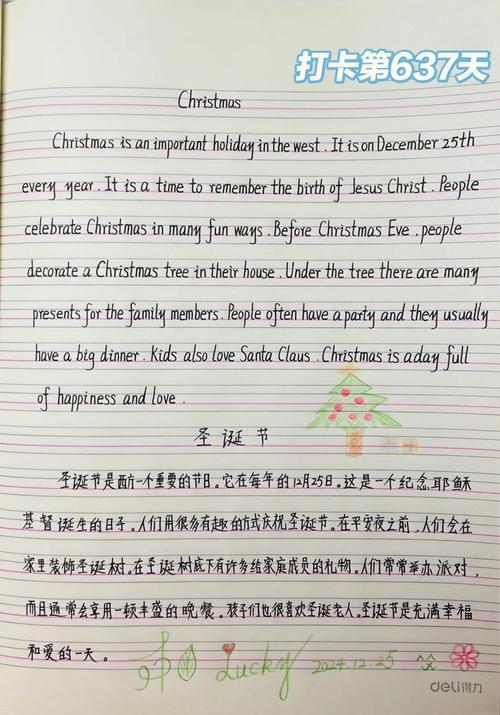 打卡第637天
Christmas
Christmas is an important holiday in the west. It is on December 25th
every year. It is a time to remember the birth of Jesus Christ. People
celebrate Christmas in many fun ways. Before Christmas Eve, people
decorate a Christmas tree in their house. Under the tree there are many
presents for the family members. People often have a party and they usually
have a big dinner. Kids also love Santa Claus. Christmas is a day full
of happiness and love.
圣诞节
圣诞节是西方一个重要的节日。它在每年的12月25日。这是一个纪念耶稣
基督诞生的日子。人们用很多有趣的方式庆祝圣诞节。在平安夜之前,人们会在
家里装饰圣诞树。在圣诞树底下有许多给家庭成员的礼物。人们常常举办派对,
而且通常会享用一顿丰盛的晚餐。孩子们也很喜欢圣诞老人。圣诞节是充满幸福
和爱的一天。
Lucky 2024.12.25
deli得力